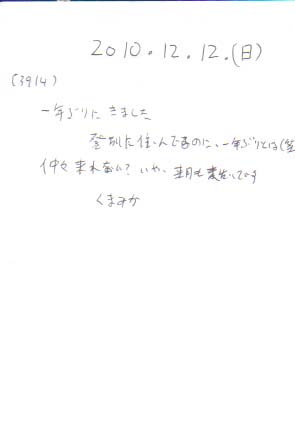 2010.12.12.(日)
(3914)
一年ぶりに きました
登別に住んでるのに、一年ぶりとは(笑
仲々来れない? いや、来月も来ています
くまみか